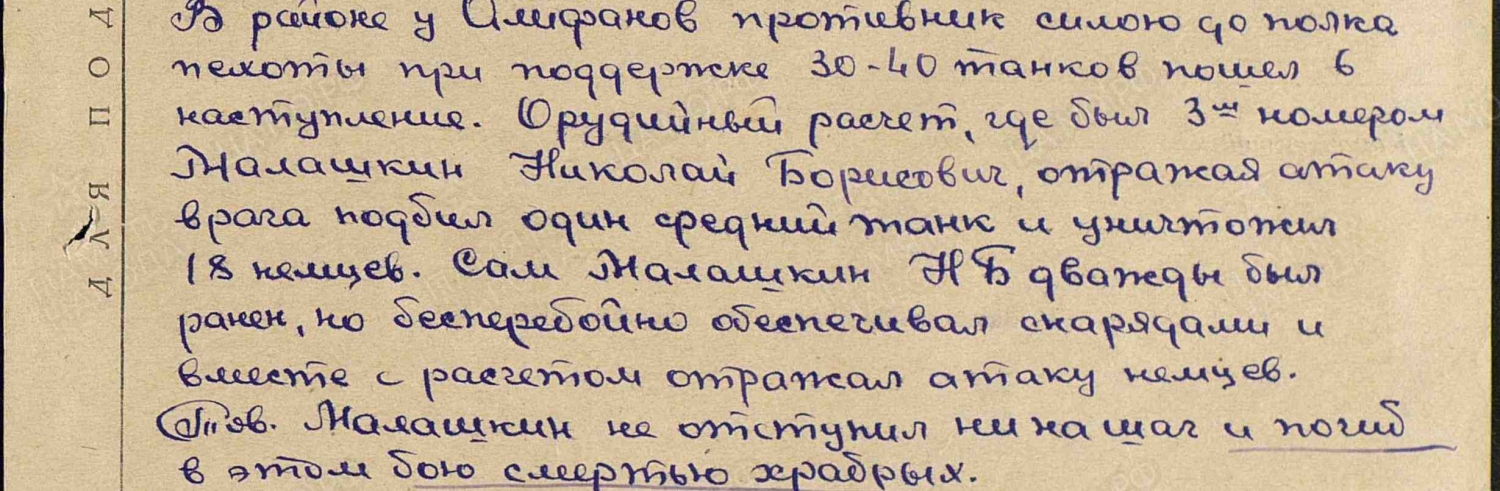 В районе у Алифанов противник силою до полка
пехоты при поддержке 30-40 танков пошел в
наступление. Орудийный расчет, где был 3им номером
Малашкин Николай Борисович, отражая атаку
врага подбил один средний танк и уничтожил
18 немцев. Сам Малашкин Н Б дважды был
ранен, но бесперебойно обеспечивал снарядами и
вместе с расчетом отражал атаку немцев.
Тов. Малашкин не отступил ни на шаг и погиб
в этом бою смертью храбрых.
ДЛЯ ПОД